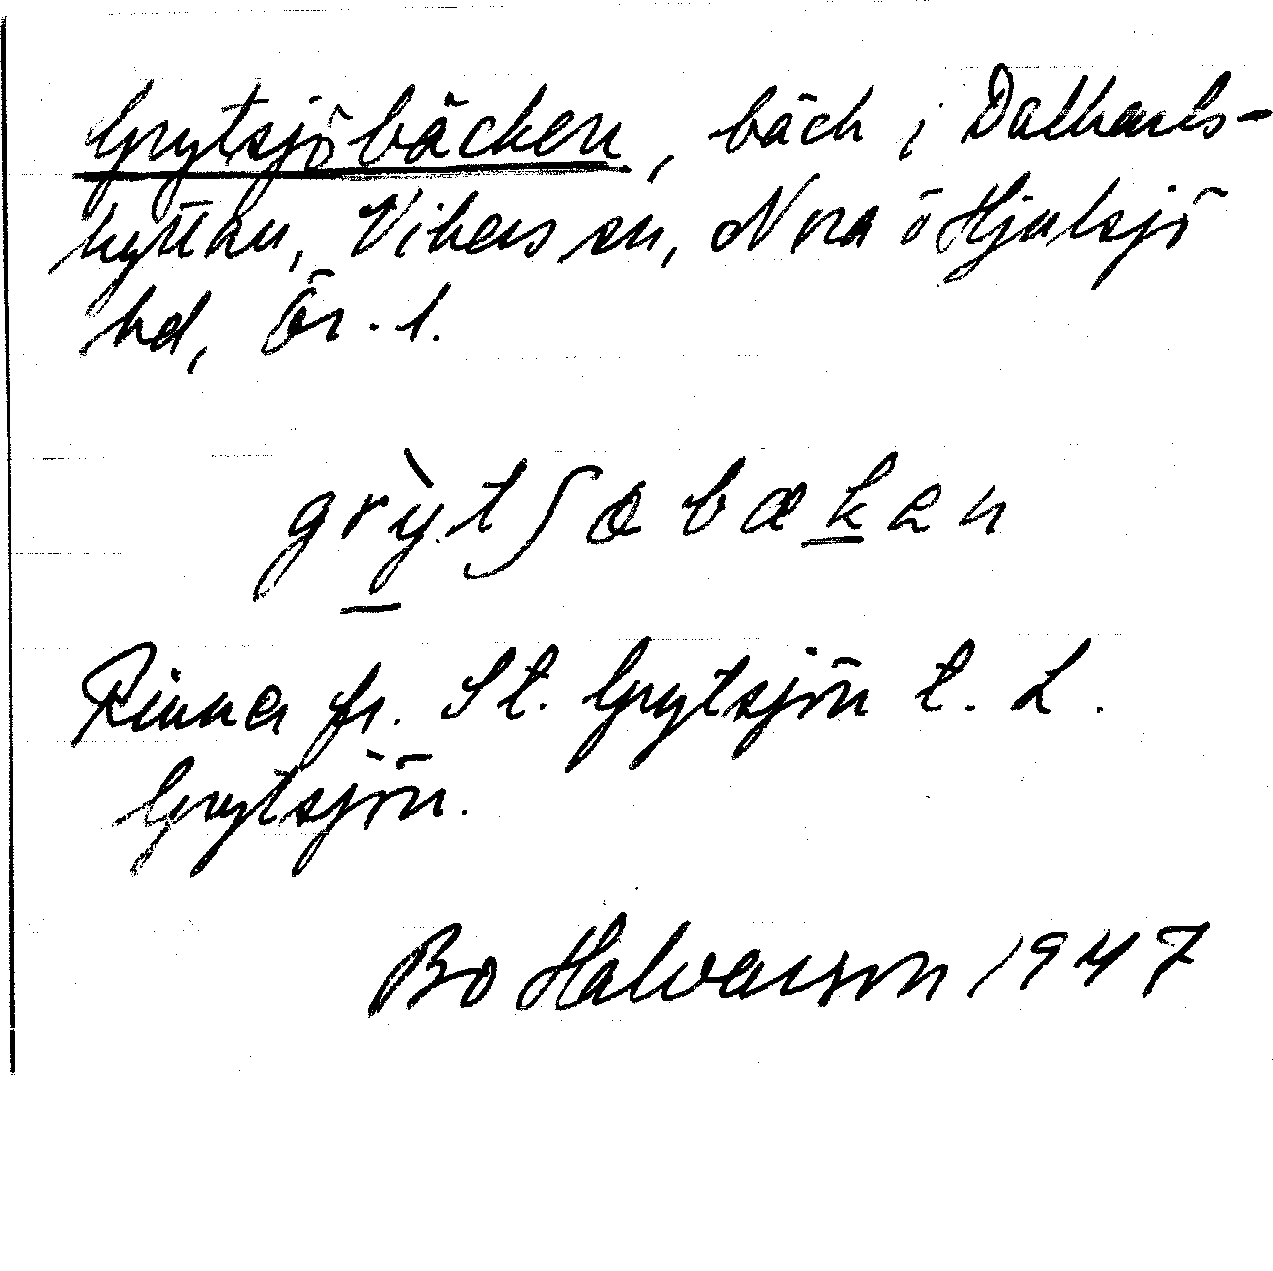 Grytsjöbäcken, bäck i Dalkarls-
hyttan, Vikers sn, Nora o Hjulsjö
hd, Ör. l.
grỳtʃəbækən
Rinner fr. St. Grytsjön t. L.
Grytsjön.
Bo Halvarson 1947